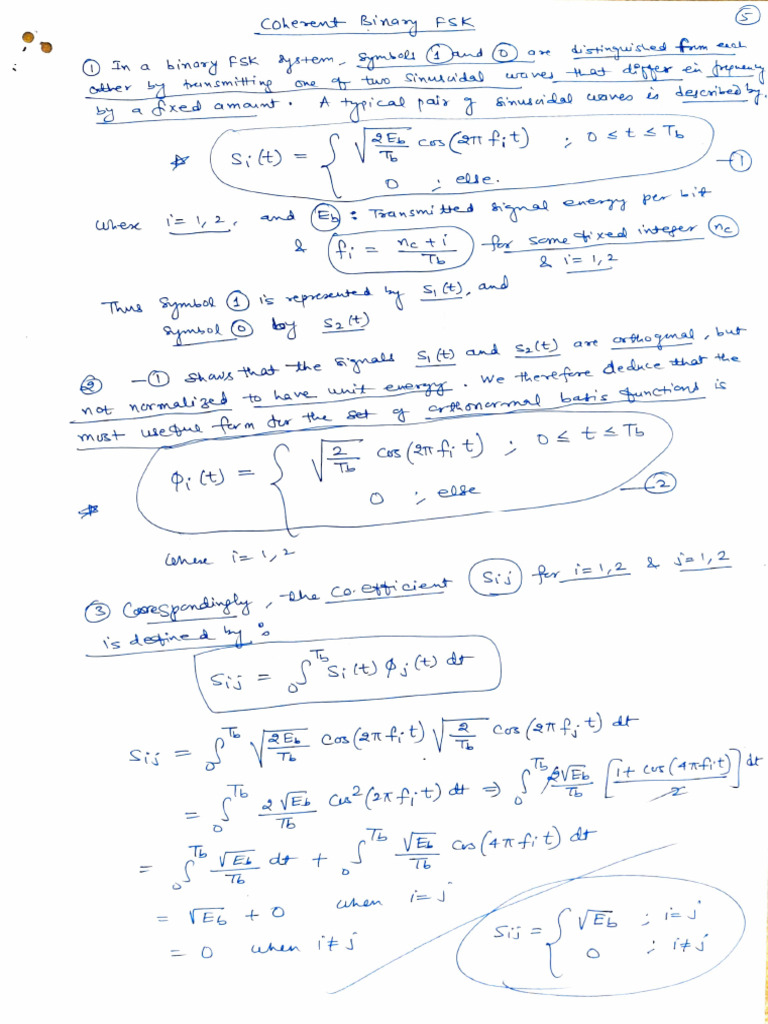 Coherent Binary FSK
5
① In a binary FSK system, symbols ① and ⓪ are distinguished from each
other by transmitting one of two sinusoidal waves that differ in frequency
by a fixed amount. A typical pair of sinusoidal waves is described by,
* Si(t) = { √(2Eb/Tb) cos(2πfit) ; 0 ≤ t ≤ Tb
0 ; else. — ①
where i = 1, 2, and Eb : Transmitted signal energy per bit
& fi = (nc + i)/Tb for some fixed integer nc
& i = 1, 2
Thus symbol ① is represented by S1(t), and
symbol ⓪ by S2(t)
② — ① shows that the signals S1(t) and S2(t) are orthogonal, but
not normalized to have unit energy. We therefore deduce that the
most useful form for the set of orthonormal basis functions is
* φi(t) = { √(2/Tb) cos(2πfit) ; 0 ≤ t ≤ Tb
0 ; else — ②
where i = 1, 2
③ Correspondingly, the co.efficient Sij for i = 1, 2 & j = 1, 2
is defined by :
Sij = 0∫Tb Si(t) φj(t) dt
Sij = 0∫Tb √(2Eb/Tb) cos(2πfit) √(2/Tb) cos(2πfjt) dt
= 0∫Tb (2√Eb/Tb) cos²(2πfit) dt ⇒ 0∫Tb (2√Eb/Tb) [(1 + cos(4πfit))/2] dt
= 0∫Tb (√Eb/Tb) dt + 0∫Tb (√Eb/Tb) cos(4πfit) dt
= √Eb + 0 when i = j
= 0 when i ≠ j
Sij = { √Eb ; i = j
0 ; i ≠ j